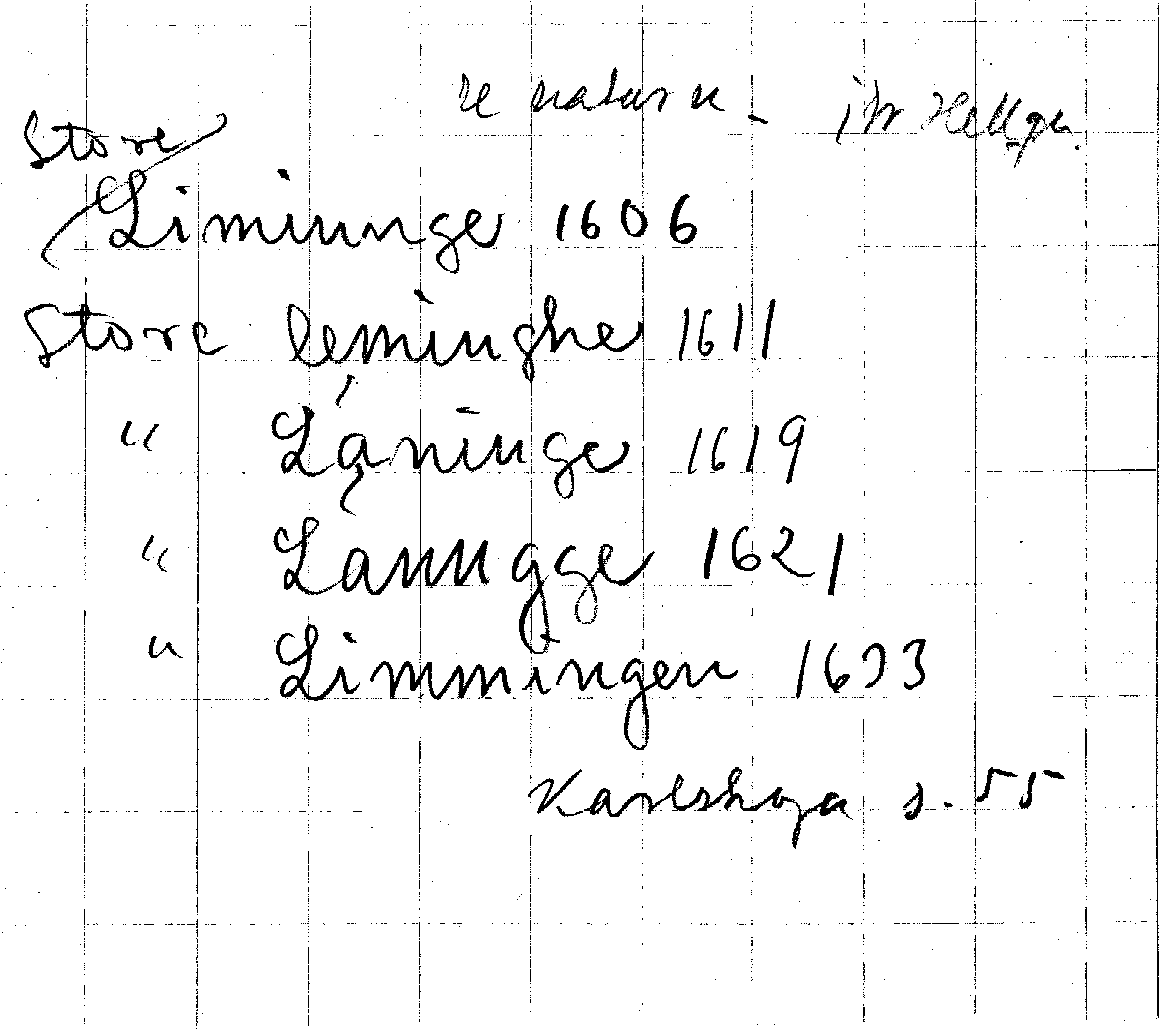 Store
Limiunge 1606
Store leminghe 1611
" Låninge 1619
" Lånugge 1621
" Limmingen 1633
Karlskoga s. 55